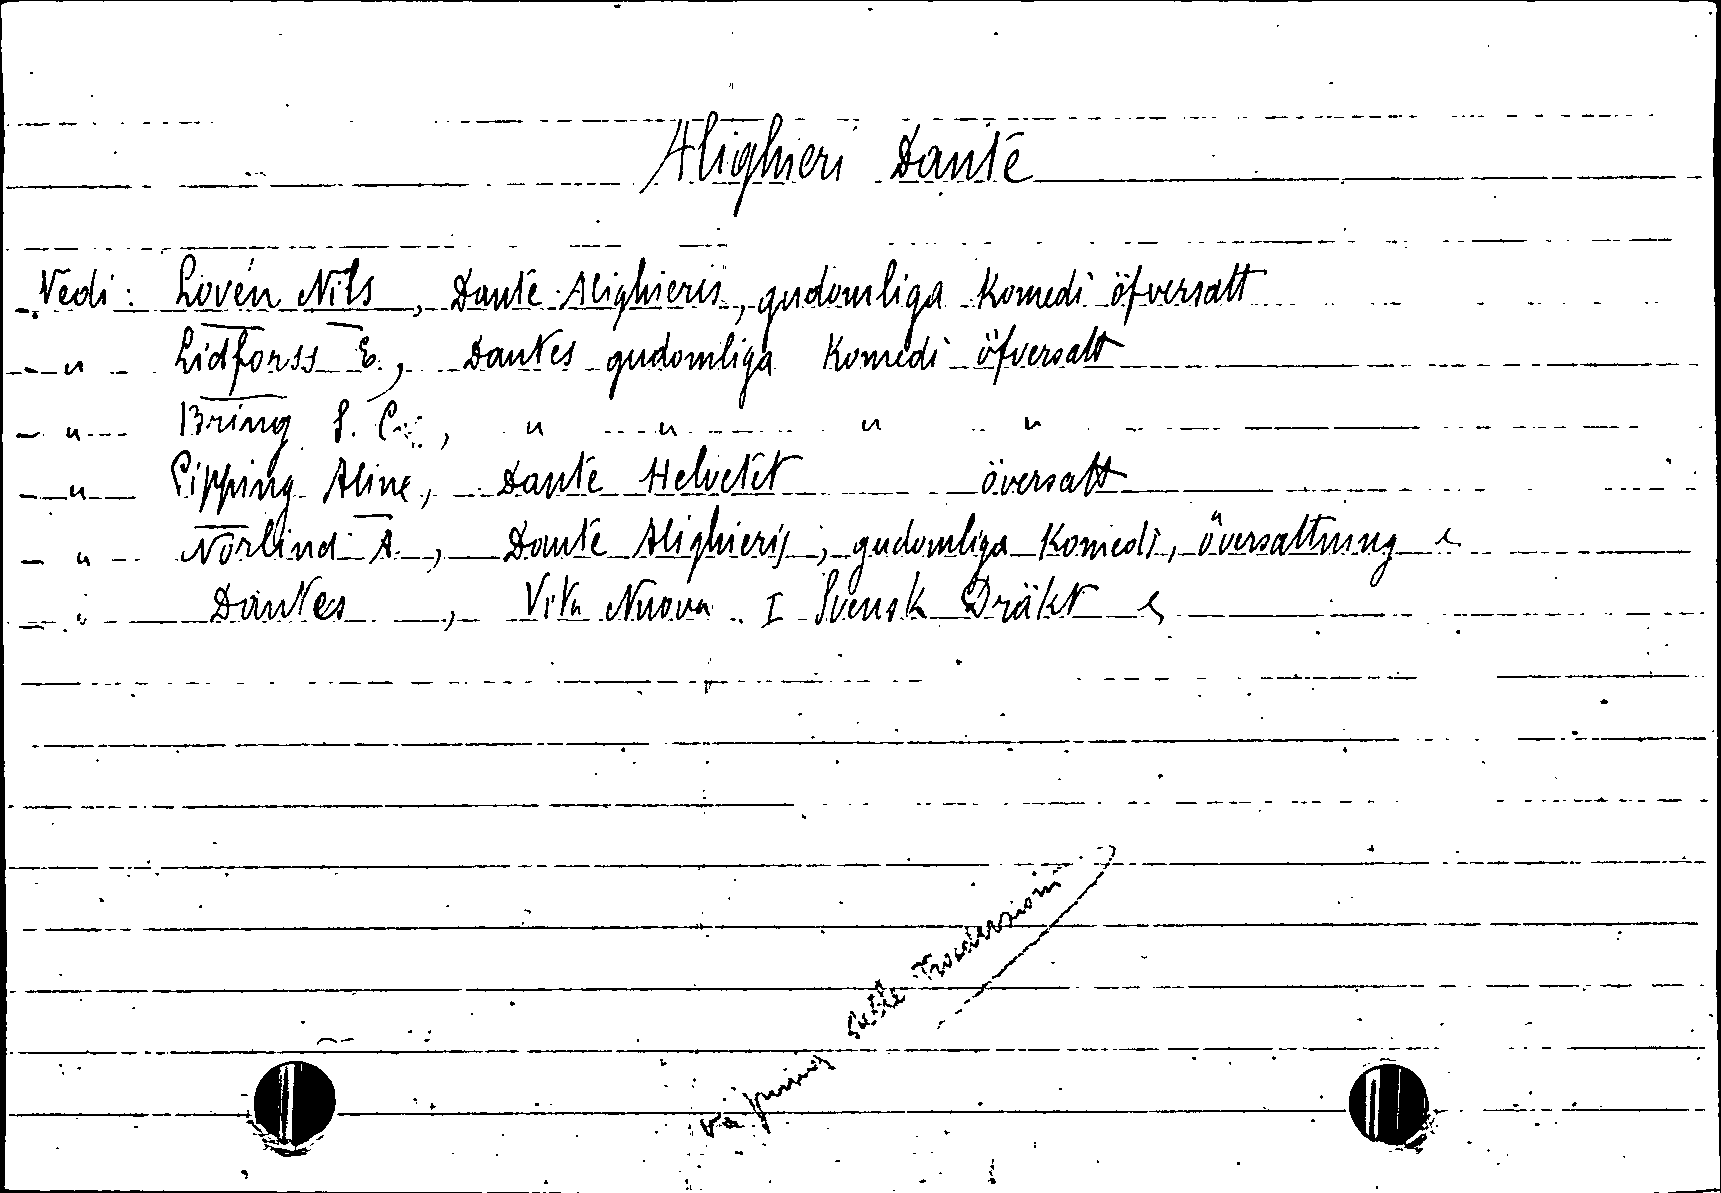 Alighieri Dante
Vedi: Lovén Nils, Dante Alighieris, gudomliga Komedi öfversatt
" Lidforss E., Dantes gudomliga Komedi öfversatt
" Bring S. C., " " " "
" Pipping Aline, Dante Helvetet översatt
" Norlind A., Dante Alighieris, gudomliga Komedi, översattning
" Dantes, Vita Nuova I Svensk Dräkt
va prima delle Traduzioni